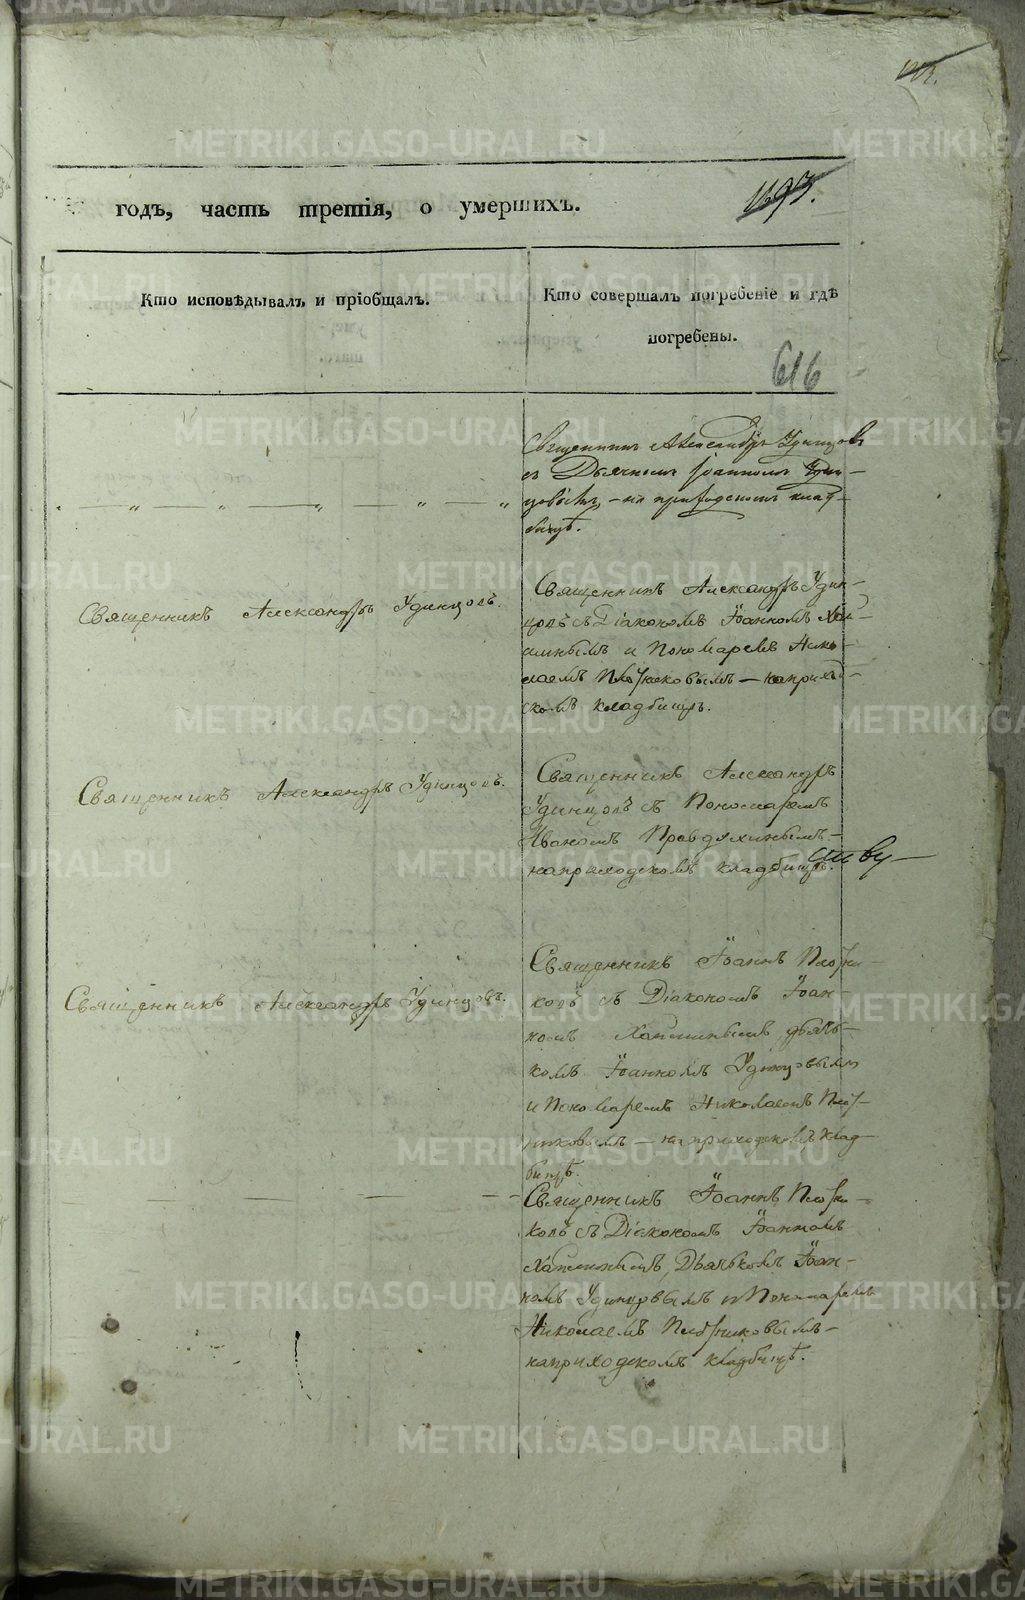 1693.
годъ, часть третія, о умершихъ.
Кто исповѣдывалъ и пріобщалъ.
Кто совершалъ погребеніе и гдѣ
погребены.
616
Священникъ Александръ Удинцовъ
съ Дьячкомъ Іоанномъ Удин-
цовымъ, – на приходскомъ клад-
бищѣ.
Священникъ Александръ Удинцовъ.
Священникъ Александръ Удин-
цовъ съ Діакономъ Іоанномъ
и Пономаремъ Нико-
лаемъ – на приход-
скомъ кладбищѣ.
Священникъ Александръ Удинцовъ.
Священникъ Александръ
Удинцовъ съ Пономаремъ
Иваномъ Правдухинымъ –
на приходскомъ кладбищѣ.
ству
Священникъ Александръ Удинцовъ.
Священникъ Іоаннъ Плотни-
ковъ съ Діакономъ Іоан-
номъ дьяч-
комъ Іоанномъ Удинцовымъ
и Пономаремъ Николаемъ Плот-
никовымъ – на приходскомъ клад-
бищѣ.
Священникъ Іоаннъ Плотни-
ковъ съ Діакономъ Іоанномъ
Дьячкомъ Іоан-
номъ Удинцовымъ и Пономаремъ
Николаемъ Плотниковымъ –
на приходскомъ кладбищѣ.
METRIKI.GASO-URAL.RU